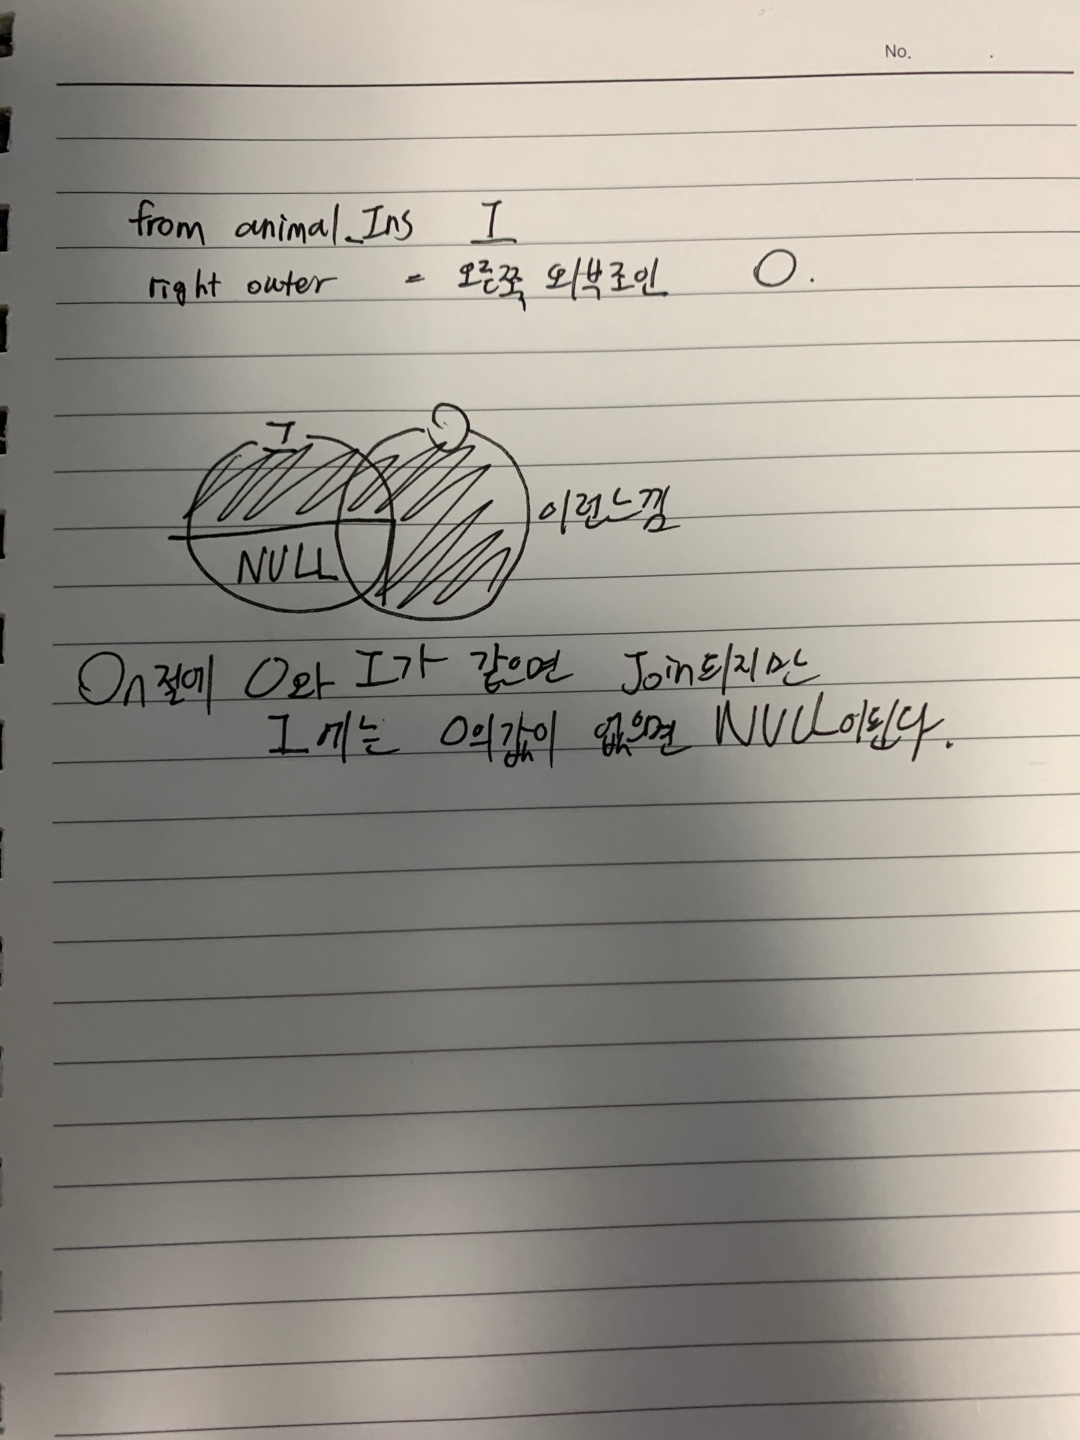 No. .
from animal_Ins I
right outer = 오른쪽 외부조인 O.
I O
이런느낌
NULL
On절에 O와 I가 같으면 Join되지만
I에는 O의값이 없으면 NULL이된다.